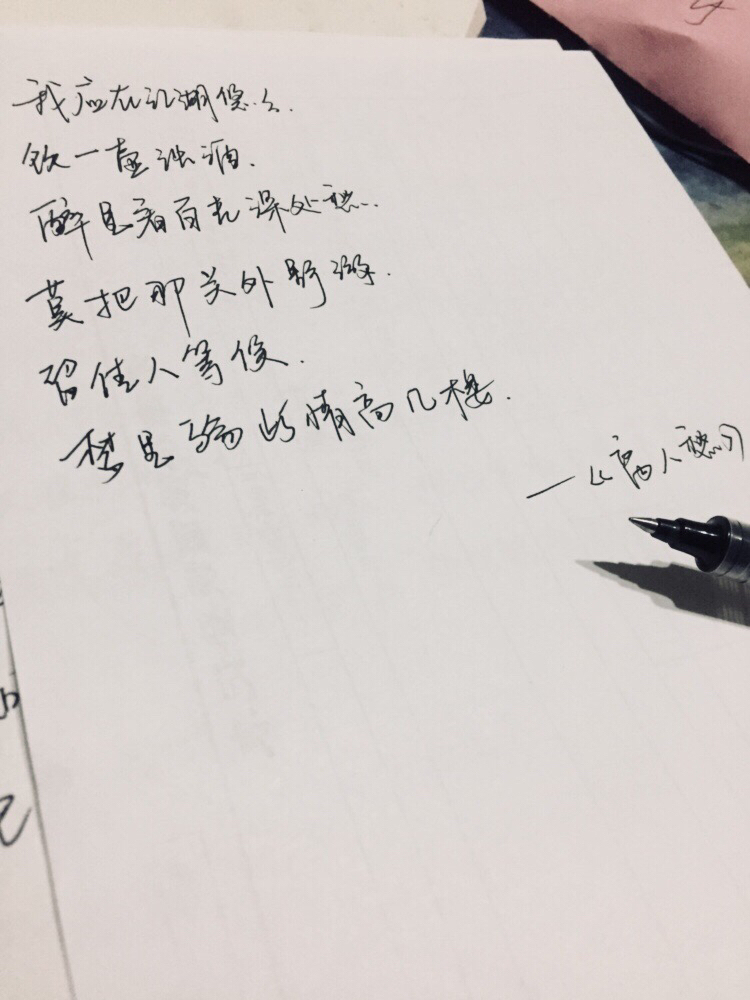 我应在江湖悠悠.
饮一壶浊酒.
醉里看百花深处愁..
莫把那关外野游.
留佳人等候.
梦里骗此情高几楼.
——《离人愁》